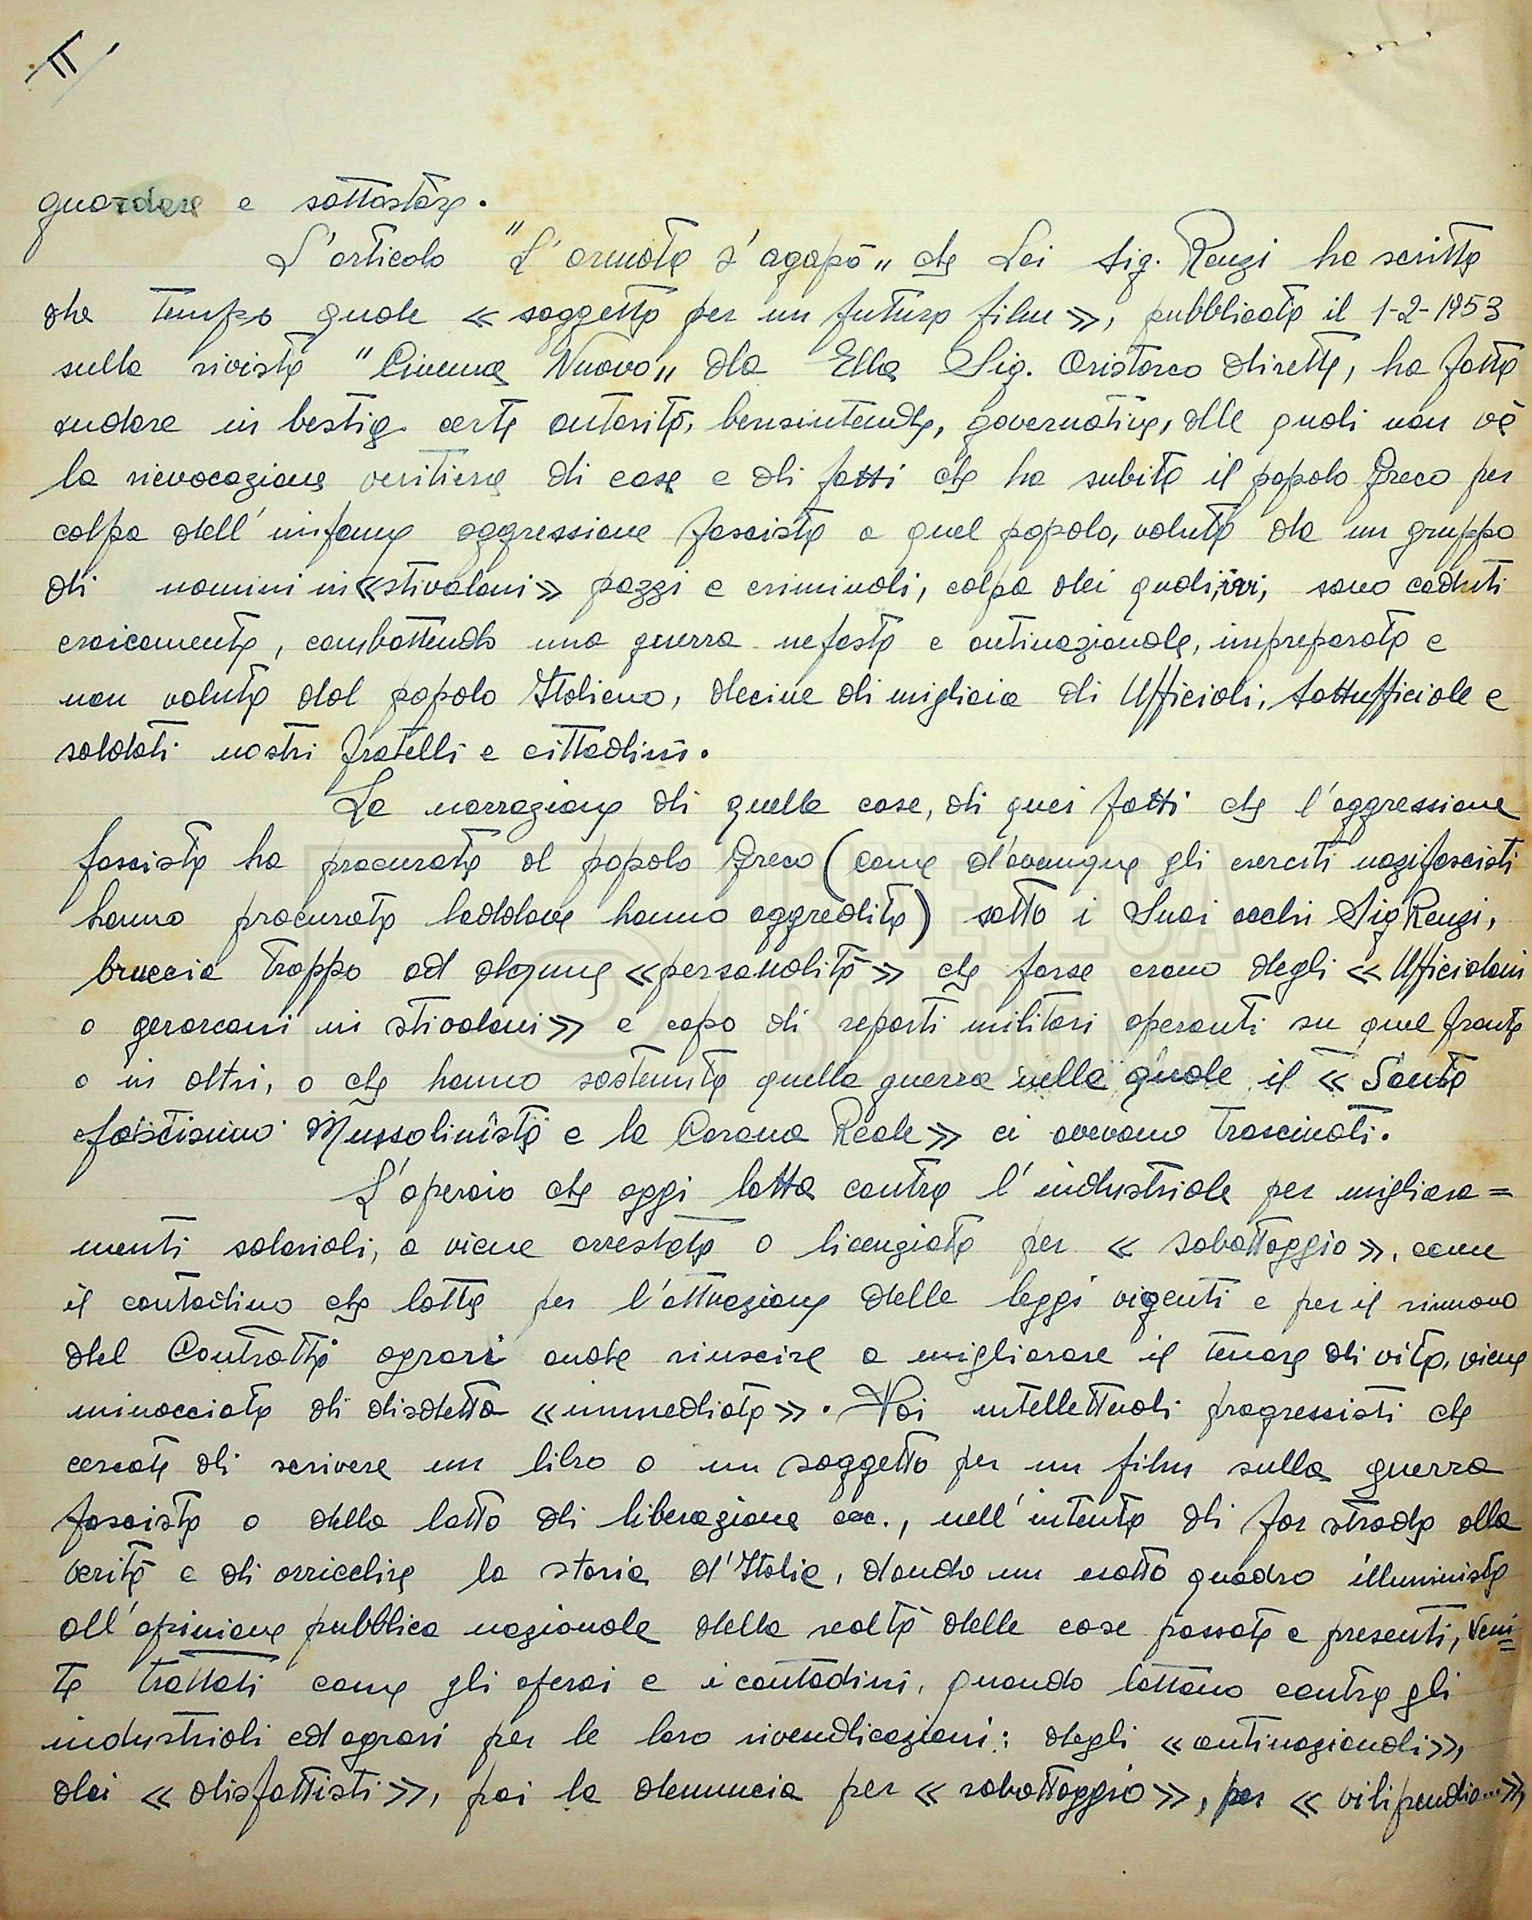 II
guardare e sottostare.
L'articolo "L'armata s'agapò„ che Lei Sig. Renzi ha scritto
che tempo quale « soggetto per un futuro film », pubblicato il 1-2-1953
sulla rivista "Cinema Nuovo„ da Ella Sig. Aristarco diretta, ha fatto
andare in bestia certe autorità, bensintende, governative, alle quali non và
la rievocazione veritiera di cose e di fatti che ha subito il popolo Greco per
colpa dell'infame aggressione fascista a quel popolo, voluta da un gruppo
di uomini in «stivaloni» pazzi e criminali, colpa dei quali, ivi, sono caduti
eroicamente, combattendo una guerra nefasta e antinazionale, impreparata e
non voluta dal popolo Italiano, decine di migliaia di Ufficiali, Sottufficiale e
soldati nostri fratelli e cittadini.
La narrazione di quelle cose, di quei fatti che l'aggressione
fascista ha procurato al popolo Greco (come d'ovunque gli eserciti nazifascisti
hanno procurato laddove hanno aggredito) sotto i Suoi occhi Sig Renzi,
bruccia troppo ad alcune «personalità» che forse erano degli « Ufficialoni
o gerarconi in stivaloni» e capo di reparti militari operanti su quel fronte
o in altri, o che hanno sostenuto quella guerra nella quale il « Santo
fascismo Mussolinista e la Corona Reale» ci avevano trascinati.
L'operaio che oggi lotta contro l'industriale per migliora=
menti salariali, o viene arrestato o licenziato per « sabottaggio», come
il contadino che lotta per l'attuazione delle leggi vigenti e per il rinnovo
del Contratto agrari onde riuscire a migliorare il tenore di vita, viene
minacciato di disdetta «immediata». Voi intellettuali progressisti che
cercate di scrivere un libro o un soggetto per un film sulla guerra
fascista o della lotta di liberazione ecc., nell'intento di far strada alla
verità e di arricchire la storia d'Italia, dando un esatto quadro illuminista
all'opinione pubblica nazionale della realtà delle cose passate e presenti, Veni=
te trattati come gli operai e i contadini, quando lottano contro gli
industriali ed agrari per le loro rivendicazioni: degli «antinazionali»,
dei « disfattisti», poi la denuncia per « sabottaggio», per « vilipendio...»,
CINETECA
BOLOGNA